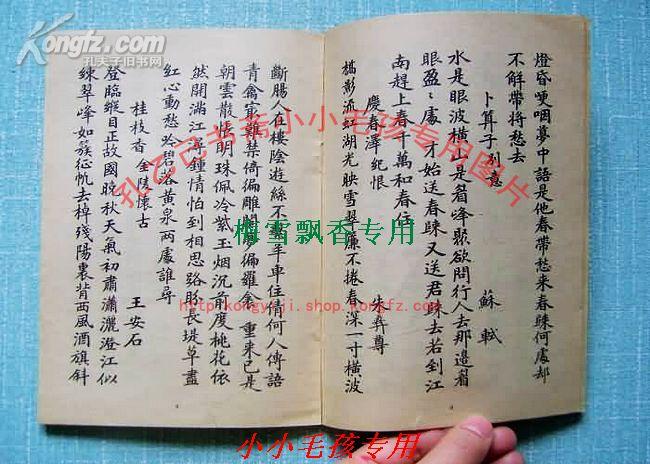 燈昏哽咽夢中語是他春帶愁來春歸何處却
不解帶將愁去
卜算子 別意
蘇軾
水是眼波橫山是眉峰聚欲問行人去那邊眉
眼盈盈處 才始送春歸又送君歸去若到江
南趕上春千萬和春住
慶春澤 紀恨 朱彝尊
橋影流虹湖光映雪翠簾不捲春深一寸橫波
斷腸人在樓陰遊絲不繫羊車住倩何人傳語
青禽最難禁倚徧雕闌夢徧羅衾 重來已是
朝雲散悵明珠佩冷紫玉烟沉前度桃花依
然開滿江潯鍾情怕到相思路盼長堤草盡
紅心動愁吟碧落黃泉兩處誰尋
桂枝香 金陵懷古 王安石
登臨縱目正故國晚秋天氣初肅瀟灑澄江似
練翠峰如簇征帆去棹殘陽裏背西風酒旗斜
Kongfz.com
孔夫子旧书网
Kongfz.com
孔夫子旧书网
孔乙己书斋小小毛孩专用图片
梅雪飘香专用
http://kongyiji.shop.kongfz.com/
小小毛孩专用